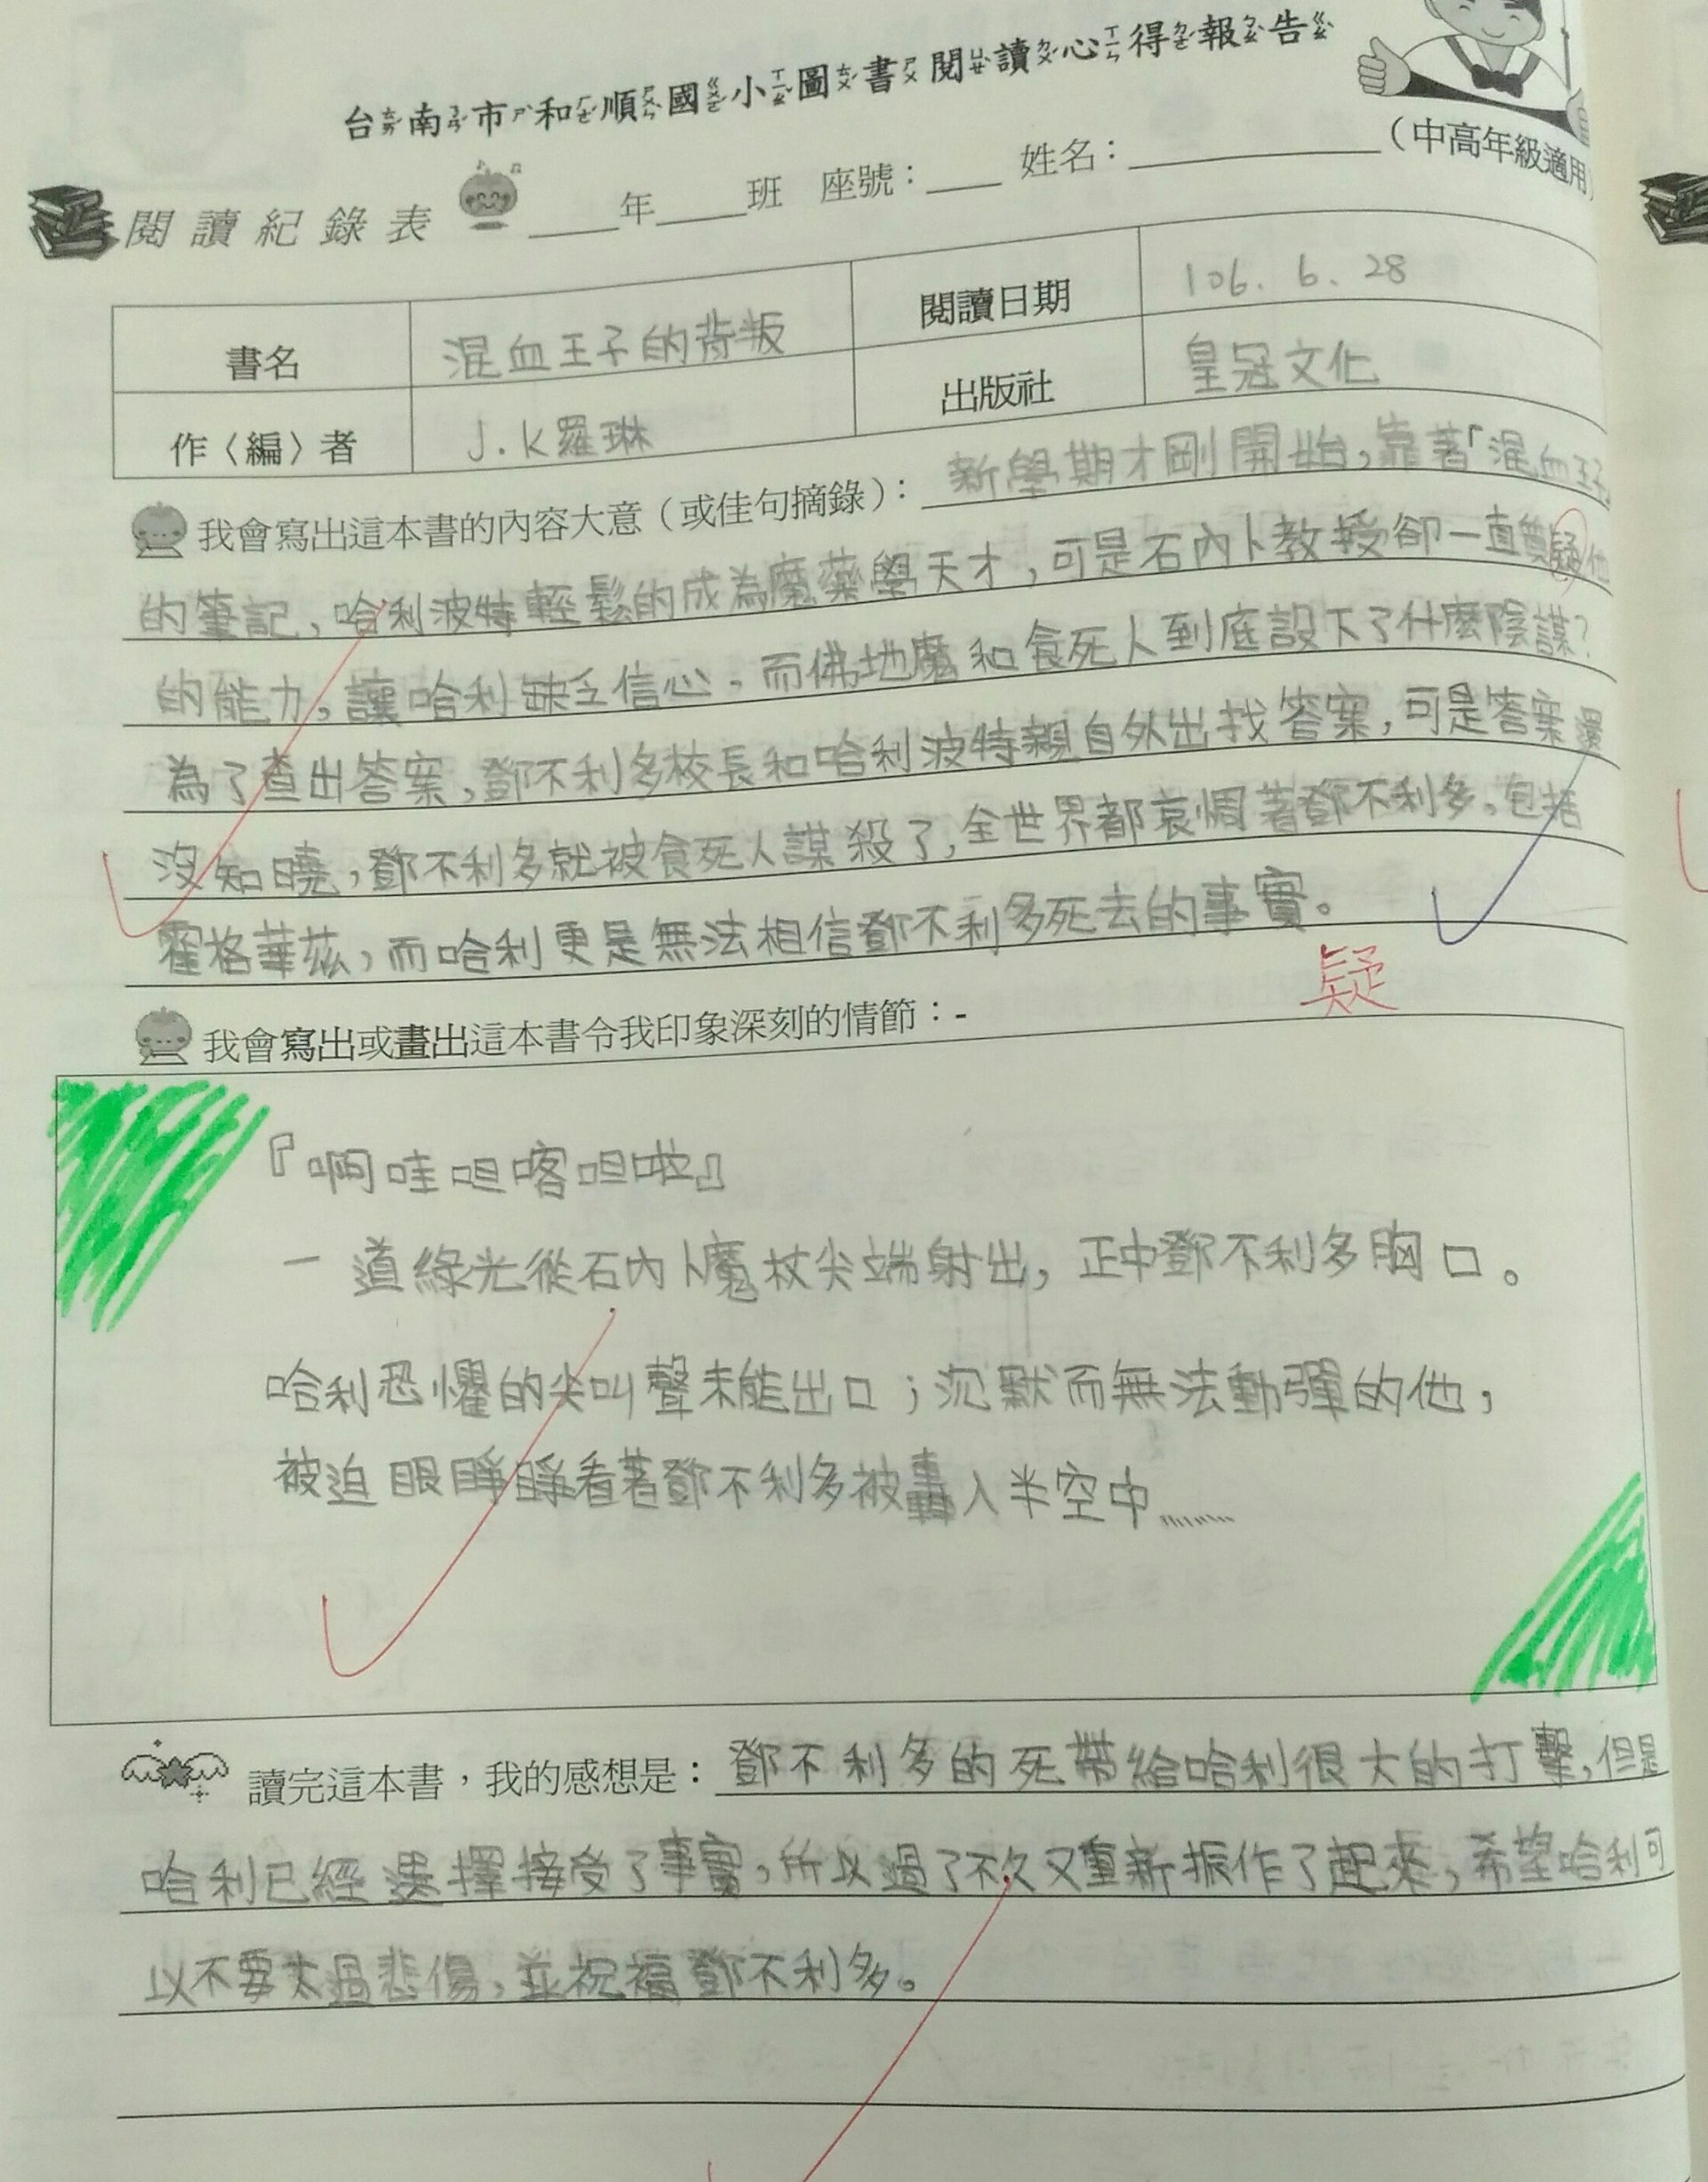 台南市和順國小圖書閱讀心得報告
(中高年級適用)
閱讀紀錄表 ____年____班 座號：____ 姓名：____
書名 混血王子的背叛 閱讀日期 106.6.28
作〈編〉者 J.K羅琳 出版社 皇冠文化
我會寫出這本書的內容大意（或佳句摘錄）：新學期才剛開始，靠著「混血王子
的筆記，哈利波特輕鬆的成為魔藥學天才，可是石內卜教授卻一直質疑他
的能力，讓哈利缺乏信心，而佛地魔和食死人到底設下了什麼陰謀？
為了查出答案，鄧不利多校長和哈利波特親自外出找答案，可是答案還
沒知曉，鄧不利多就被食死人謀殺了，全世界都哀惆著鄧不利多，包括
霍格華茲，而哈利更是無法相信鄧不利多死去的事實。
疑
我會寫出或畫出這本書令我印象深刻的情節：-
『啊哇呾喀呾啦』
一道綠光從石內卜魔杖尖端射出，正中鄧不利多胸口。
哈利恐懼的尖叫聲未能出口；沉默而無法動彈的他，
被迫眼睜睜看著鄧不利多被轟入半空中……
讀完這本書，我的感想是：鄧不利多的死帶給哈利很大的打擊，但是
哈利已經選擇接受了事實，所以過了不久又重新振作了起來，希望哈利可
以不要太過悲傷，並祝福鄧不利多。